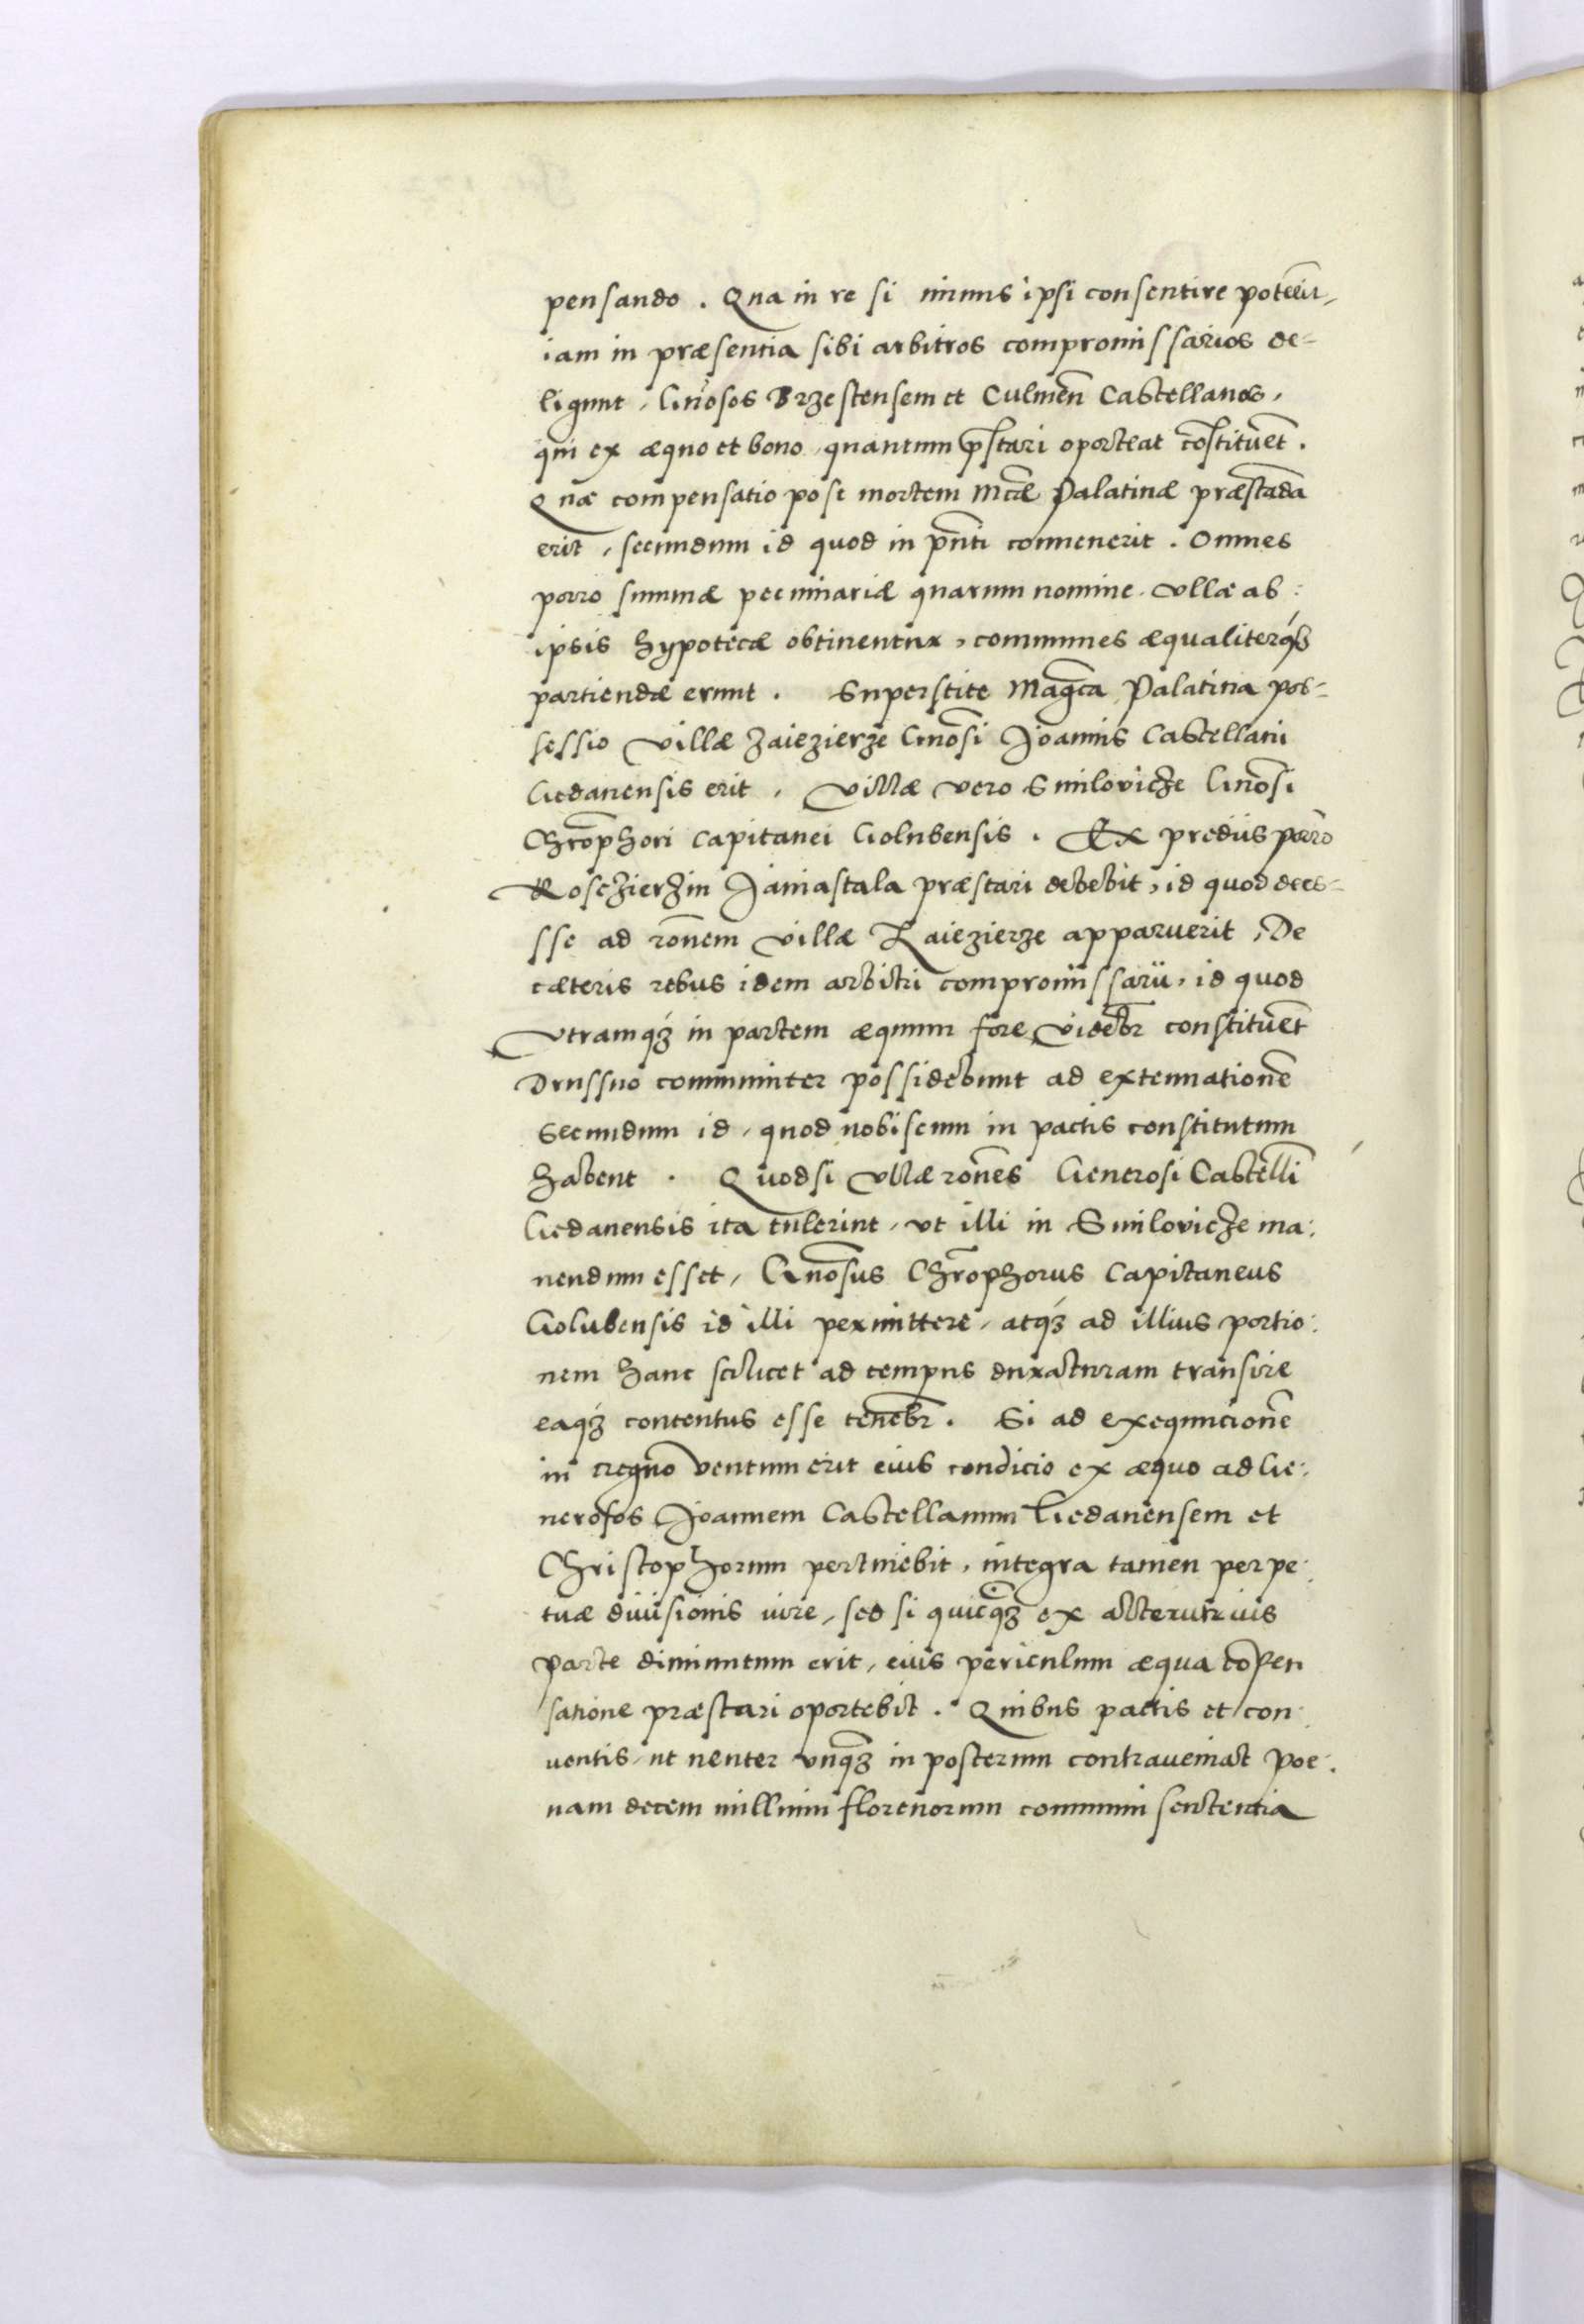 pensando. Qua in re si minus ipsi consentire poterūt,
iam in præsentia sibi arbitros compromissarios de=
ligunt, Gn̄osos Brzestensem et Culmeñ Castellanos,
qui ex æquo et bono, quantum p̄stari oporteat cōstituēt.
Quæ compensatio post mortem Mc̄æ Palatinæ præstāda
erit, secundum id quod in pn̄ti conuenerit. Omnes
porro summæ pecuniariæ quarum nomine vllæ ab:
ipsis hypotecæ obtinentur, communes æqualiterq́ȝ
partiendæ erunt. Superstite Mag̃ca Palatina pos=
sessio villæ Zaiezierze Gn̄osi Joannis Castellani
Gedanensis erit, villæ vero Smilovicze Gn̄osi
Chrōphori Capitanei Golubensis. Ex prediis porro
Rosczierzin Janiastala præstari debebit, id quod dees=
sse ad rōnem villæ Zaiezierze apparuerit, De
cæteris rebus idem arbitri compromissarii, id quod
vtramq́ȝ in partem æquum fore videbr̄ constituēt
Drussno communiter possidebunt ad extenuationē
secundum id, quod nobiscum in pactis constitutum
habent. Quodsi vllæ rōnes Generosi Castellñi
Gedanensis ita tulerint, vt illi in Smilovicze ma:
nendum esset, Gn̄osus Chrōphorus Capitaneus
Golubensis id illi permittere, atq́ȝ ad illius portio:
nem hanc scilicet ad tempus duxaturam transire
eaq́ȝ contentus esse tenebr̄. Si ad exequucionē
in regno ventum erit eius condicio ex æquo ad Ge:
nerosos Joannem Castellanum Gedanensem et
Christophorum pertinebit, integra tamen perpe:
tuæ diuisionis iure, sed si quicq̃ȝ ex alterutrius
parte diminutum erit, eius periculum æqua cōpen
satione præstari oportebit. Quibus pactis et con:
uentis, ut neuter vnq̃ȝ in posterum contraueniat poe:
nam decem millium florenorum communi sententia